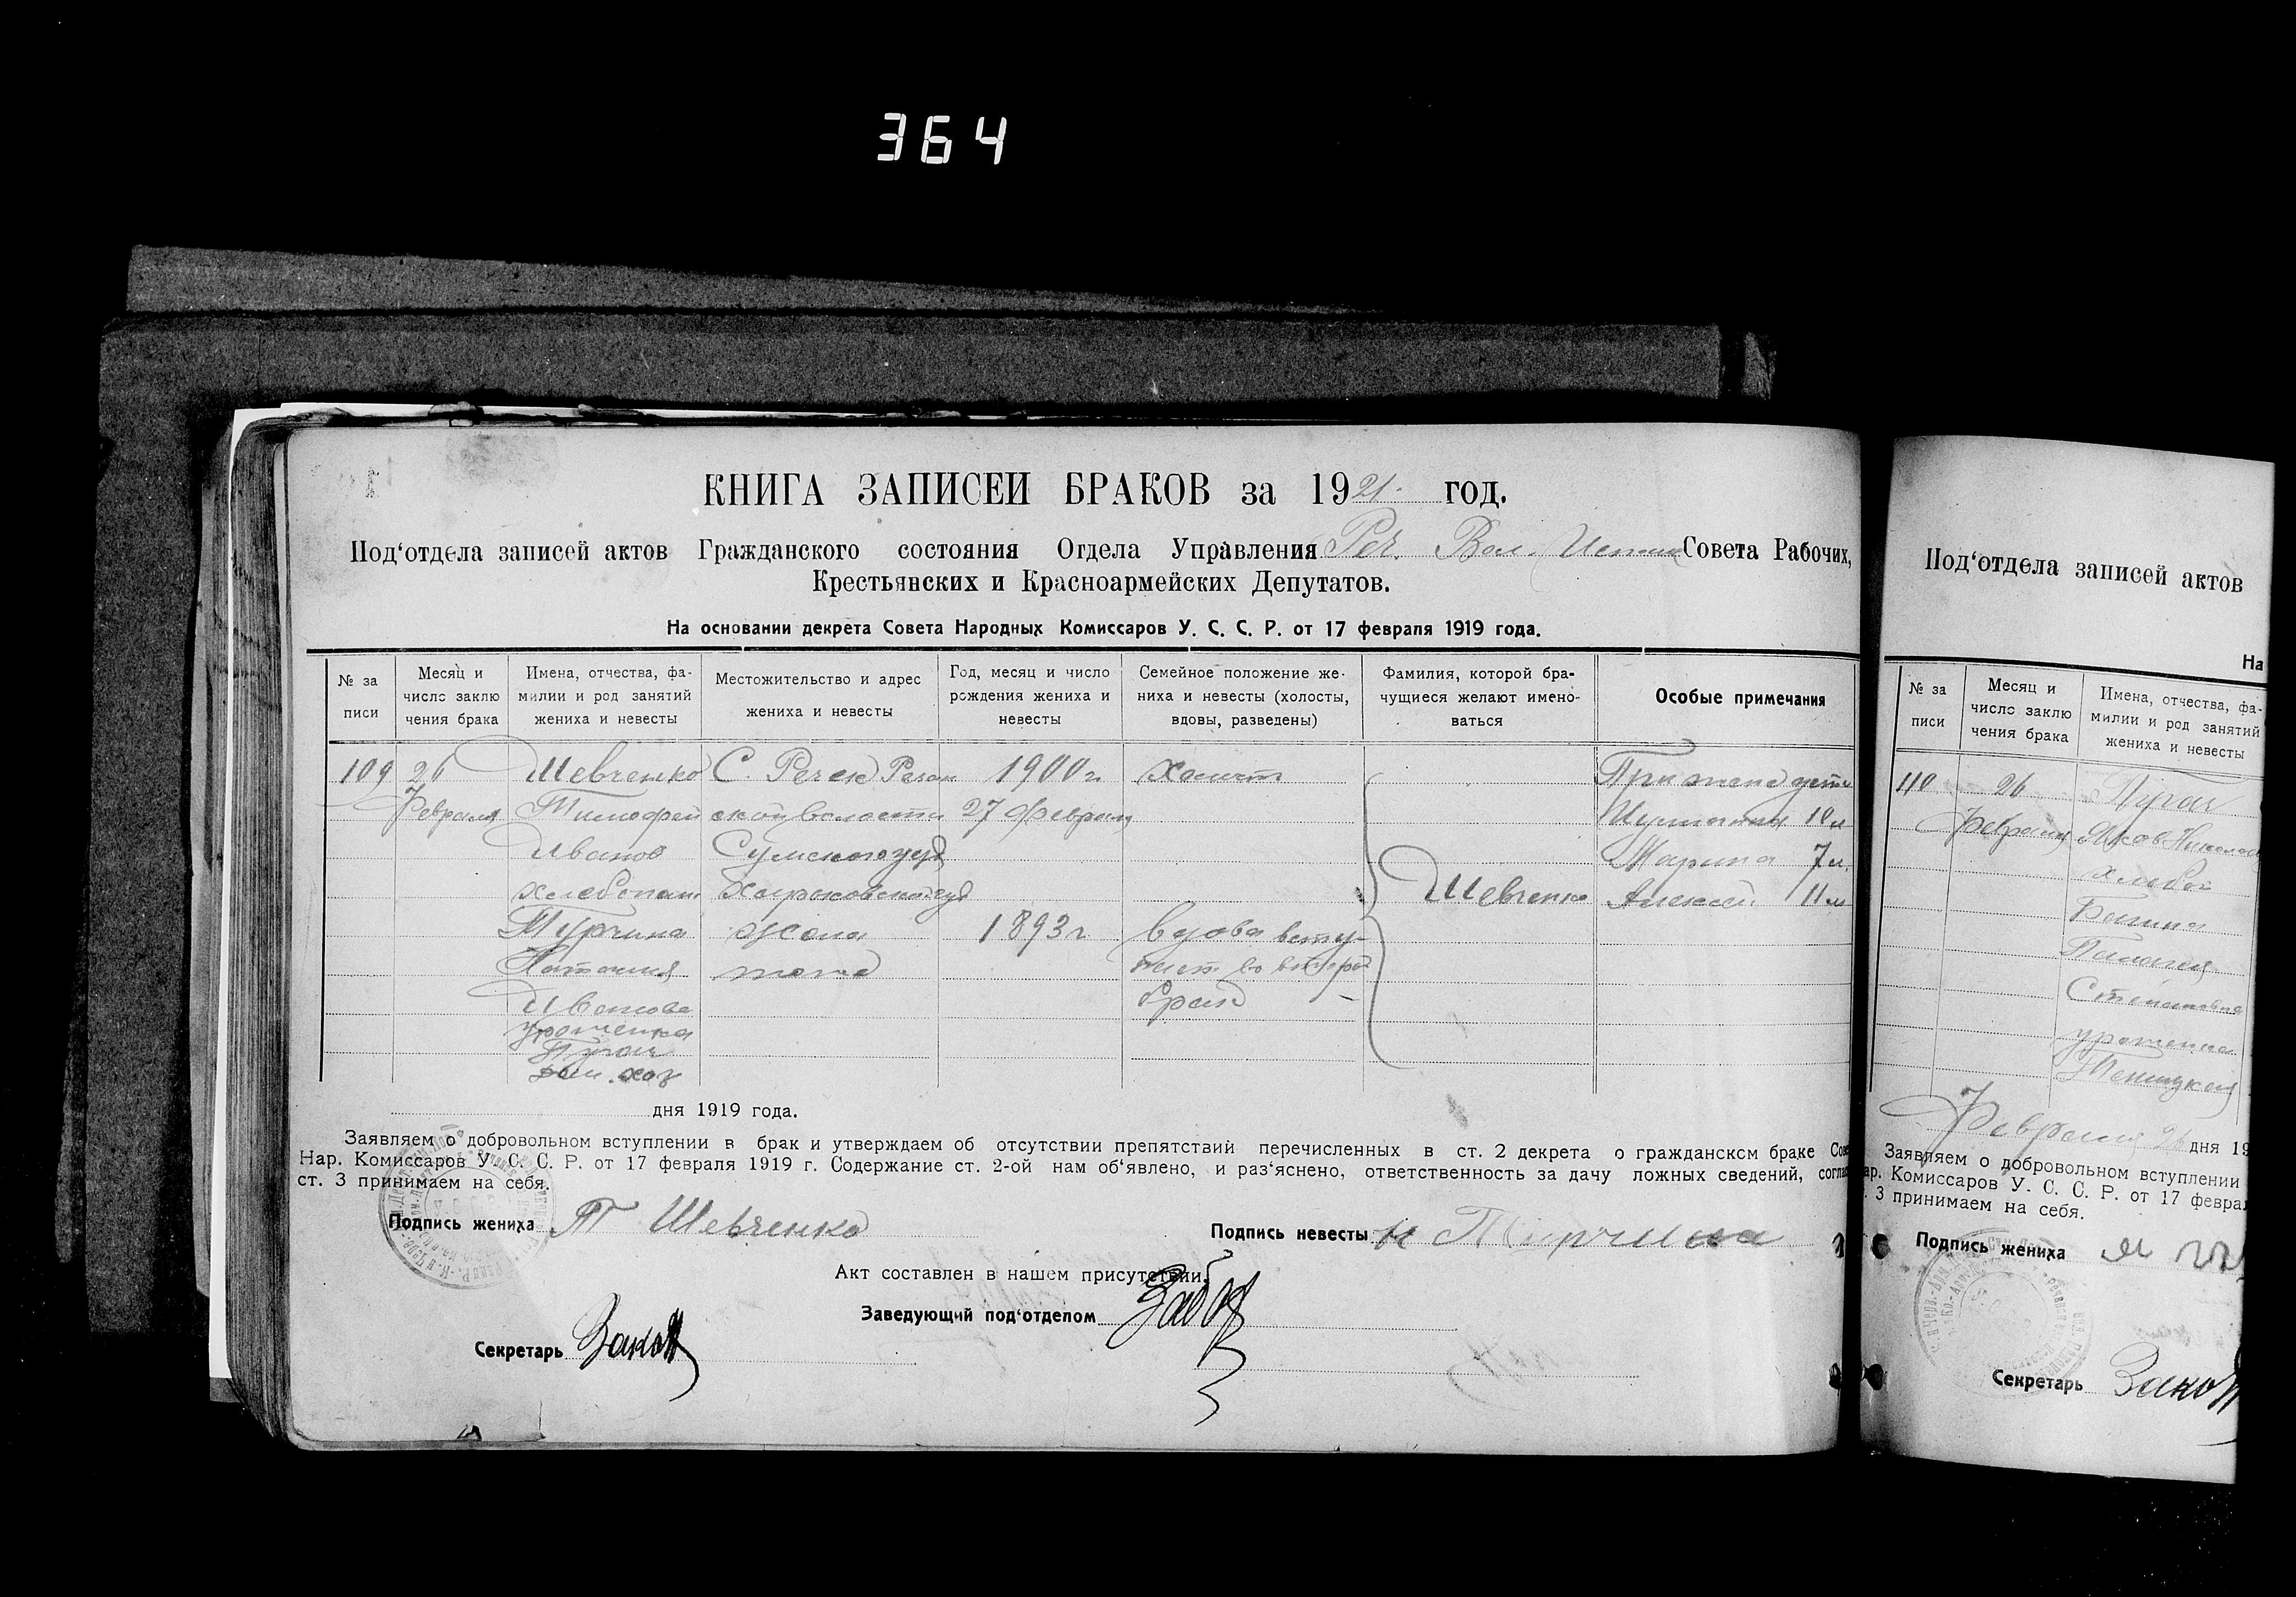 364
КНИГА ЗАПИСЕЙ БРАКОВ за 1921. год.
Под‘отдела записей актов Гражданского состояния Отдела Управления Реч. Вол. Совета Рабочих,
Крестьянских и Красноармейских Депутатов.
На основании декрета Совета Народных Комиссаров У. С. С. Р. от 17 февраля 1919 года.
№ за
писи
Месяц и
число заклю
чения брака
Имена, отчества, фа-
милии и род занятий
жениха и невесты
Местожительство и адрес
жениха и невесты
Год, месяц и число
рождения жениха и
невесты
Семейное положение же-
ниха и невесты (холосты,
вдовы, разведены)
Фамилия, которой бра-
чущиеся желают имено-
ваться
Особые примечания
109
26
Февраля
Шевченко
Тимофей
Иванов
хлебопаш
Турчина
Наталия
Иванова
уроженка
Пугач
дом. хоз
С. Речек Речан
ской волости
Сумского уез
Харьковской гуд
жена
тоже
1900 г.
27 февраля
1893 г
холост
Вдова всту-
пает во второй
брак
Шевченко
При жене дети
10 л
Марина 7 л.
Алексей 11 л
дня 1919 года.
Заявляем о добровольном вступлении в брак и утверждаем об отсутствии препятствий перечисленных в ст. 2 декрета о гражданском браке Сове
Нар. Комиссаров У. С. С. Р. от 17 февраля 1919 г. Содержание ст. 2-ой нам об‘явлено, и раз‘яснено, ответственность за дачу ложных сведений, соглас
ст. 3 принимаем на себя.
Подпись жениха Т Шевченко
Подпись невесты Н Турчина
Акт составлен в нашем присутствии.
Заведующий под‘отделом
Секретарь
Под‘отдела записей актов
На
№ за
писи
Месяц и
число заклю
чения брака
Имена, отчества, фа-
милии и род занятий
жениха и невесты
110
26
Февраля
Пугач
Яков Николае
хлебоп
Степановна
уроженка
Февраля 26 дня 19
Заявляем о добровольном вступлении
ар. Комиссаров У. С. С. Р. от 17 феврал
. 3 принимаем на себя.
Подпись жениха
Секретарь